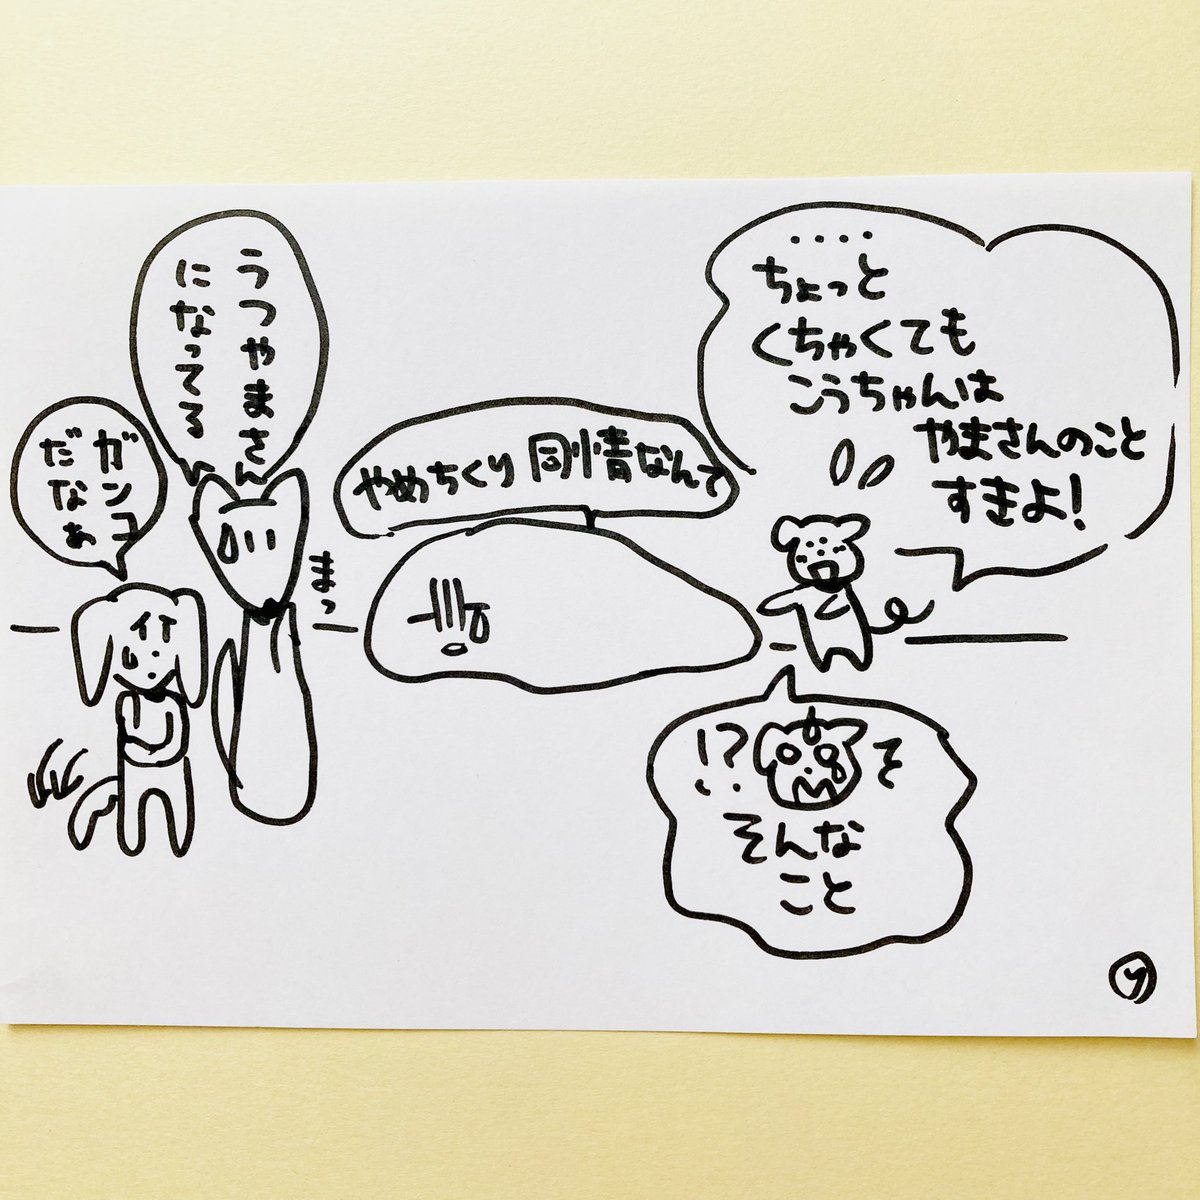 ・・・・
ちょっと
くちゃくても
こうちゃんは
やまさんのこと
すきよ!
!?
そ
そんな
こと
やめちくり 同情なんて
うつやまさん
になってる
まっ
ガンコ
だなぁ